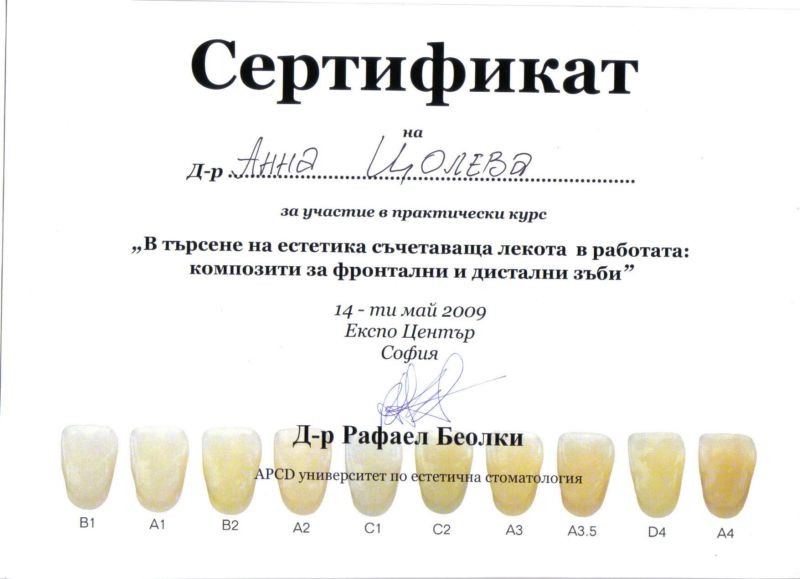 Сертификат
на
Д-р Анна Цолева
за участие в практически курс
„В търсене на естетика съчетаваща лекота в работата:
композити за фронтални и дистални зъби”
14 - ти май 2009
Експо Център
София
Д-р Рафаел Беолки
APCD университет по естетична стоматология
B1 A1 B2 A2 C1 C2 A3 A3.5 D4 A4